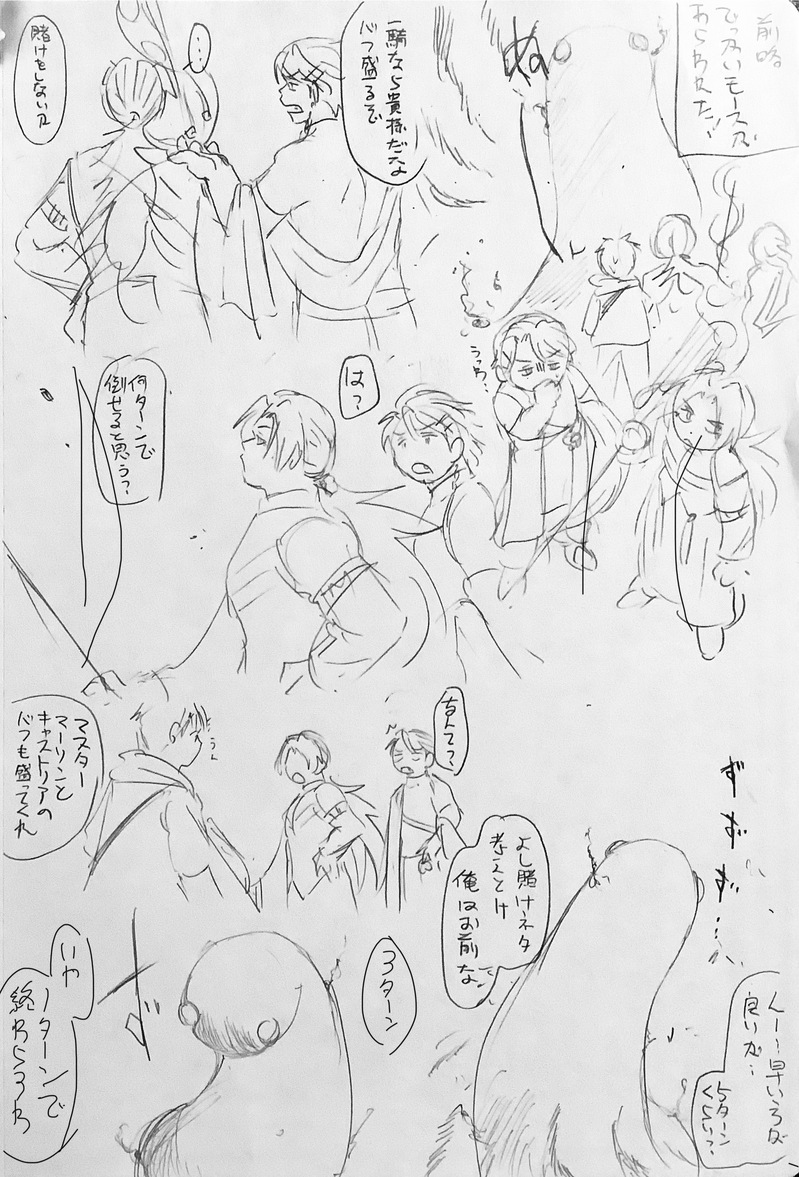 前略
でっかいモースが
あらわれた!
ぬ
一騎なら貴様だな
バフ盛るぞ
…
賭けをしないか
うっわ…
は?
何ターンで
倒せると思う?
なんて?
うん
マスター
マーリンと
キャストリアの
バフも盛ってくれ
ず
ず
ず
…
んー…早いうちが
良いが…
5ターン
くらい?
よし賭けネタ
考えとけ
俺はお前な
3ターン
いや
1ターンで
終わらろわ